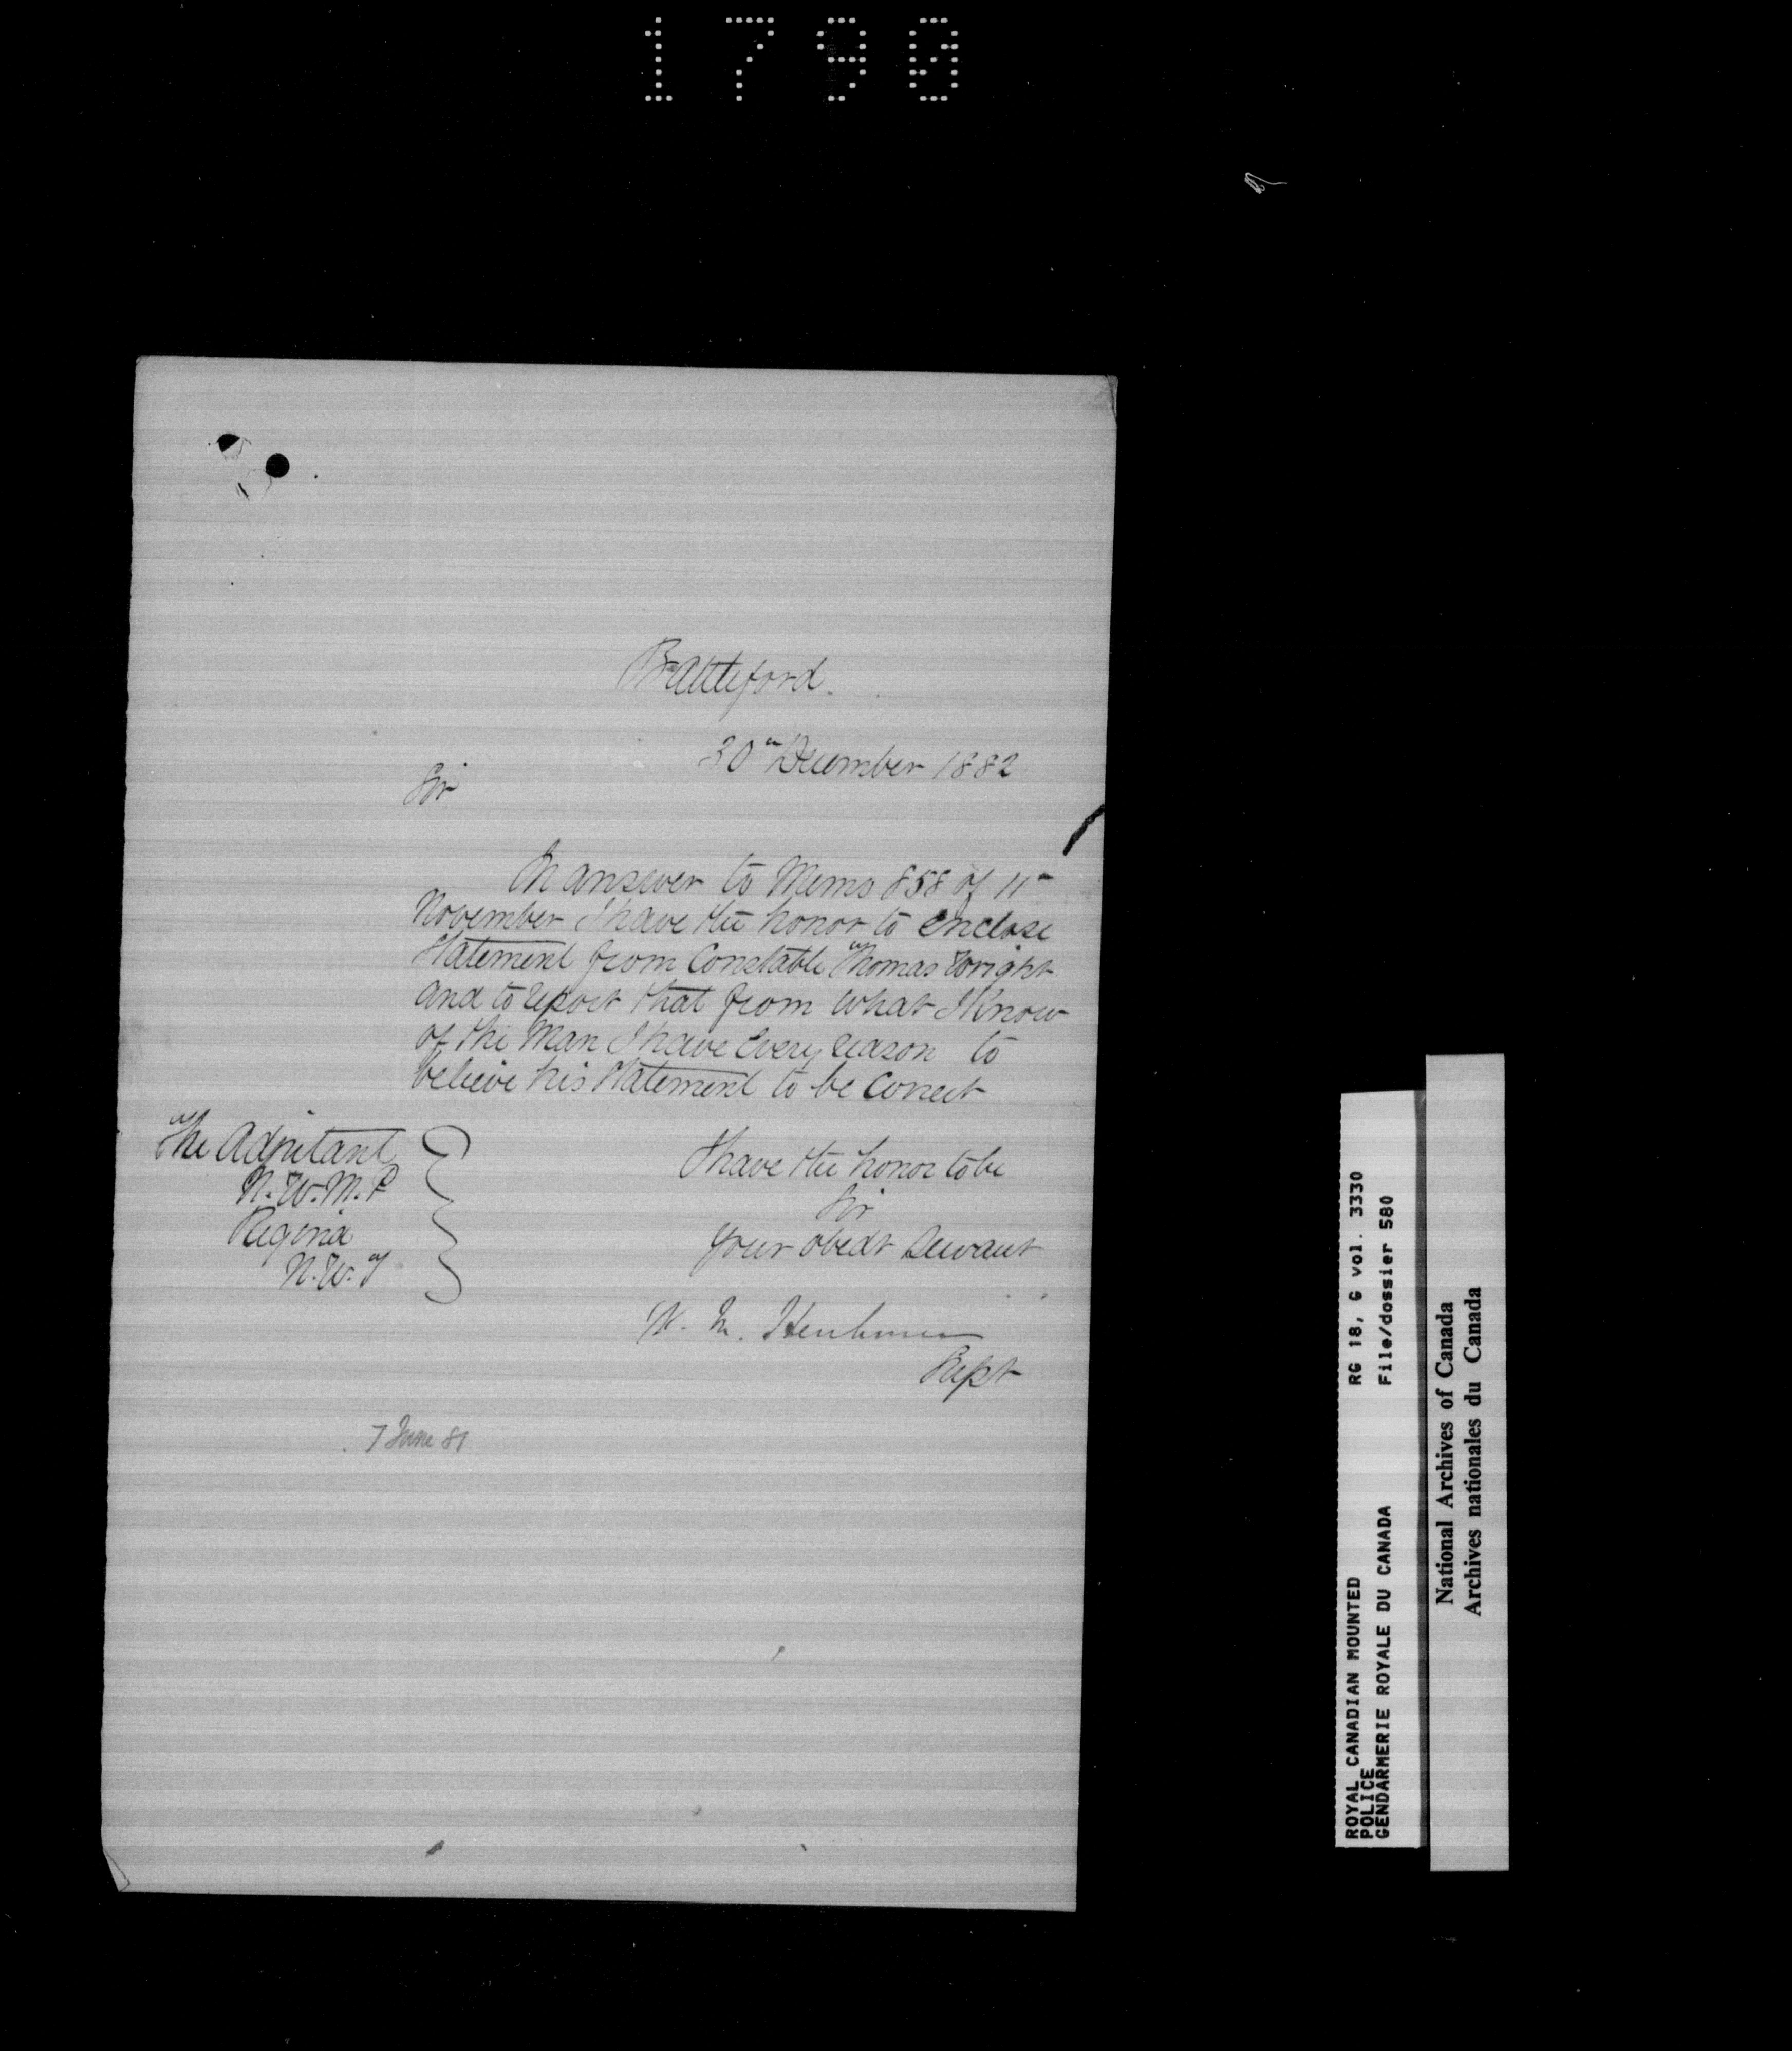 1790
Battleford.
30th December 1882
Sir
In answer to Memo 858 of 11th
November I have the honor to enclose
Statement from Constable Thomas Wright
and to report that from what I Know
of the Man I have Every reason to
believe his Statement to be Correct
The Adjutant
N.W.M.P
Regina
N.W.T
I have the honor to be
Sir
Your obedt Servant
W. M. Herchmer
Supt
7 June 81
ROYAL CANADIAN MOUNTED RG 18, G vol. 3330
POLICE
GENDARMERIE ROYALE DU CANADA File/dossier 580
National Archives of Canada
Archives nationales du Canada